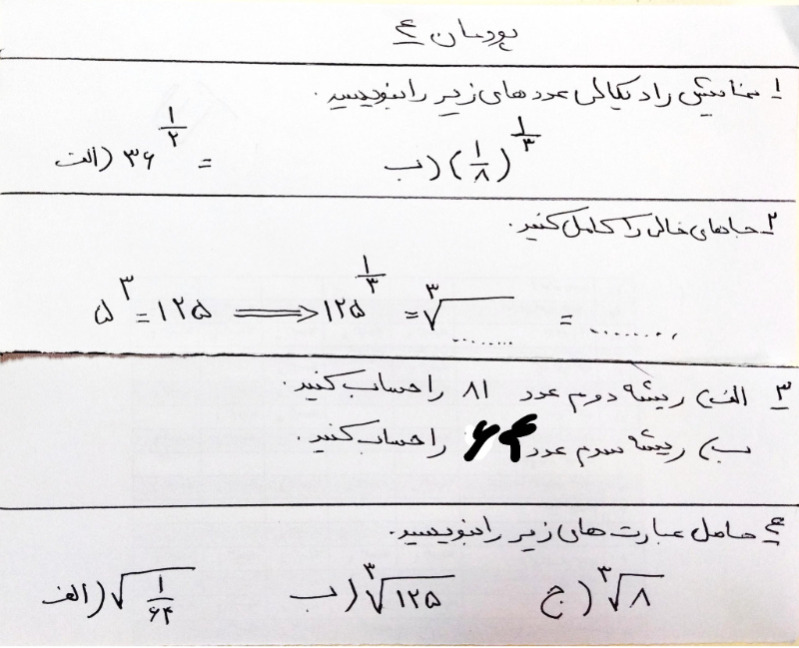 پودمان ۴
۱ـ نمایش رادیکالی عددهای زیر را بنویسید.
الف) ۳۶^(۱/۲) =    ب) (۱/۸)^(۱/۳)
۲ـ جاهای خالی را کامل کنید.
۵^۳ = ۱۲۵ ⟹ ۱۲۵^(۱/۳) = ∛........ = ........
۳ الف) ریشه دوم عدد ۸۱ را حساب کنید.
ب) ریشه سوم عدد ۶۴ را حساب کنید.
۴ حاصل عبارت های زیر را بنویسید.
الف) √(۱/۶۴)    ب) ∛۱۲۵    ج) ∛۸